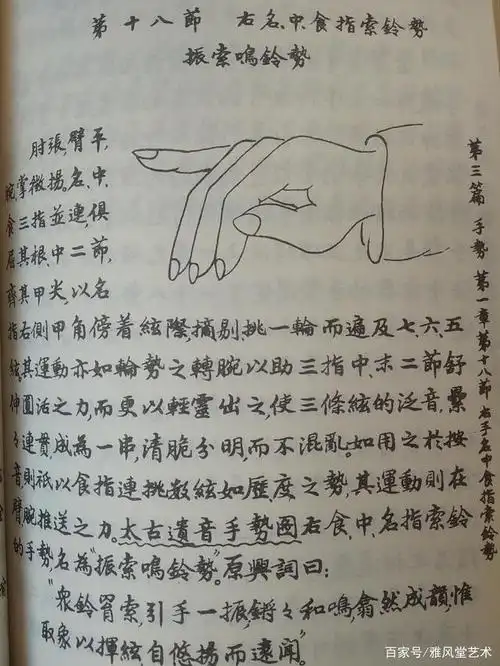 第十八節　右名、中、食指索鈴勢
振索鳴鈴勢
肘張，臂平，
腕掌微揚。名、中、
食三指並連，俱
屈其根、中二節，
齊其甲尖，以名
指右側甲角傍着絃際，摘、剔、挑一輪而遍及七、六、五
絃，其運動亦如輪勢之轉腕以助三指中、末二節舒
伸圓活之力，而更以輕靈出之，使三條絃的泛音，纍
々連貫成為一串，清脆分明，而不混亂。如用之於按
音，則祇以食指連挑數絃如歷度之勢，其運動則在
臂腕推送之力。太古遺音手勢圖右食、中、名指索鈴
的手勢名為“振索鳴鈴勢”。原興詞曰：
“衆鈴罥索，引手一振，鏘々和鳴，翕然成韻，惟
取象以揮絃，自悠揚而遠聞”。
第三篇　手勢　第一章　第十八節　右手名中食指索鈴勢
百家号/雅风堂艺术